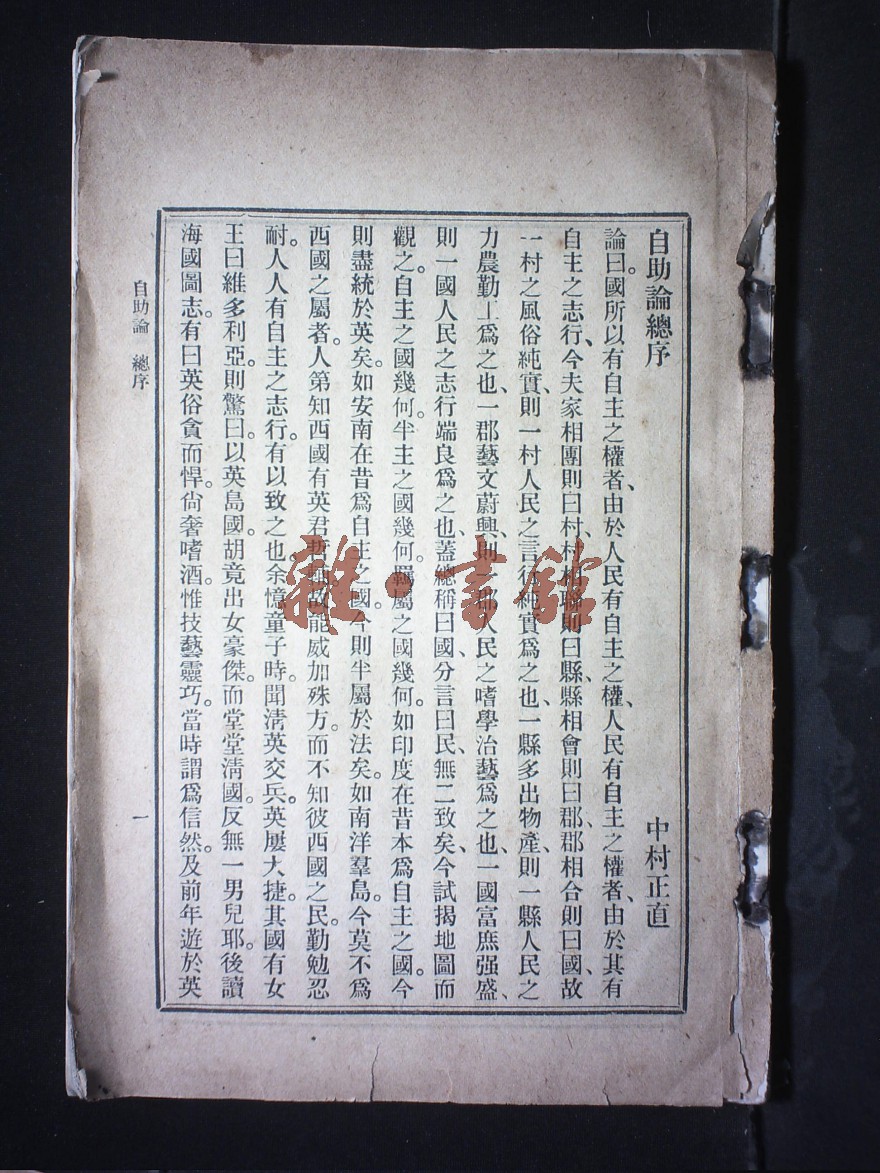 自助論總序
中村正直
論曰。國所以有自主之權者、由於人民有自主之權、人民有自主之權者、由於其有
自主之志行、今夫家相團則曰村、村相聯則曰縣、縣相會則曰郡、郡相合則曰國、故
一村之風俗純實、則一村人民之言行純實爲之也、一縣多出物產、則一縣人民之
力農勤工爲之也、一郡藝文蔚興、則一郡人民之嗜學治藝爲之也、一國富庶强盛、
則一國人民之志行端良爲之也、蓋總稱曰國、分言曰民、無二致矣、今試揭地圖而
觀之。自主之國幾何。半主之國幾何。羈屬之國幾何。如印度在昔本爲自主之國。今
則盡統於英矣。如安南在昔爲自主之國。今則半屬於法矣。如南洋羣島。今莫不爲
西國之屬者。人第知西國有英君哲輔。故能威加殊方。而不知彼西國之民。勤勉忍
耐。人人有自主之志行。有以致之也。余憶童子時。聞淸英交兵。英屢大捷。其國有女
王曰維多利亞。則驚曰。以英島國。胡竟出女豪傑。而堂堂淸國。反無一男兒耶。後讀
海國圖志。有曰英俗貪而悍。尙奢嗜酒。惟技藝靈巧。當時謂爲信然。及前年遊於英
自助論 總序
一
雜·書館